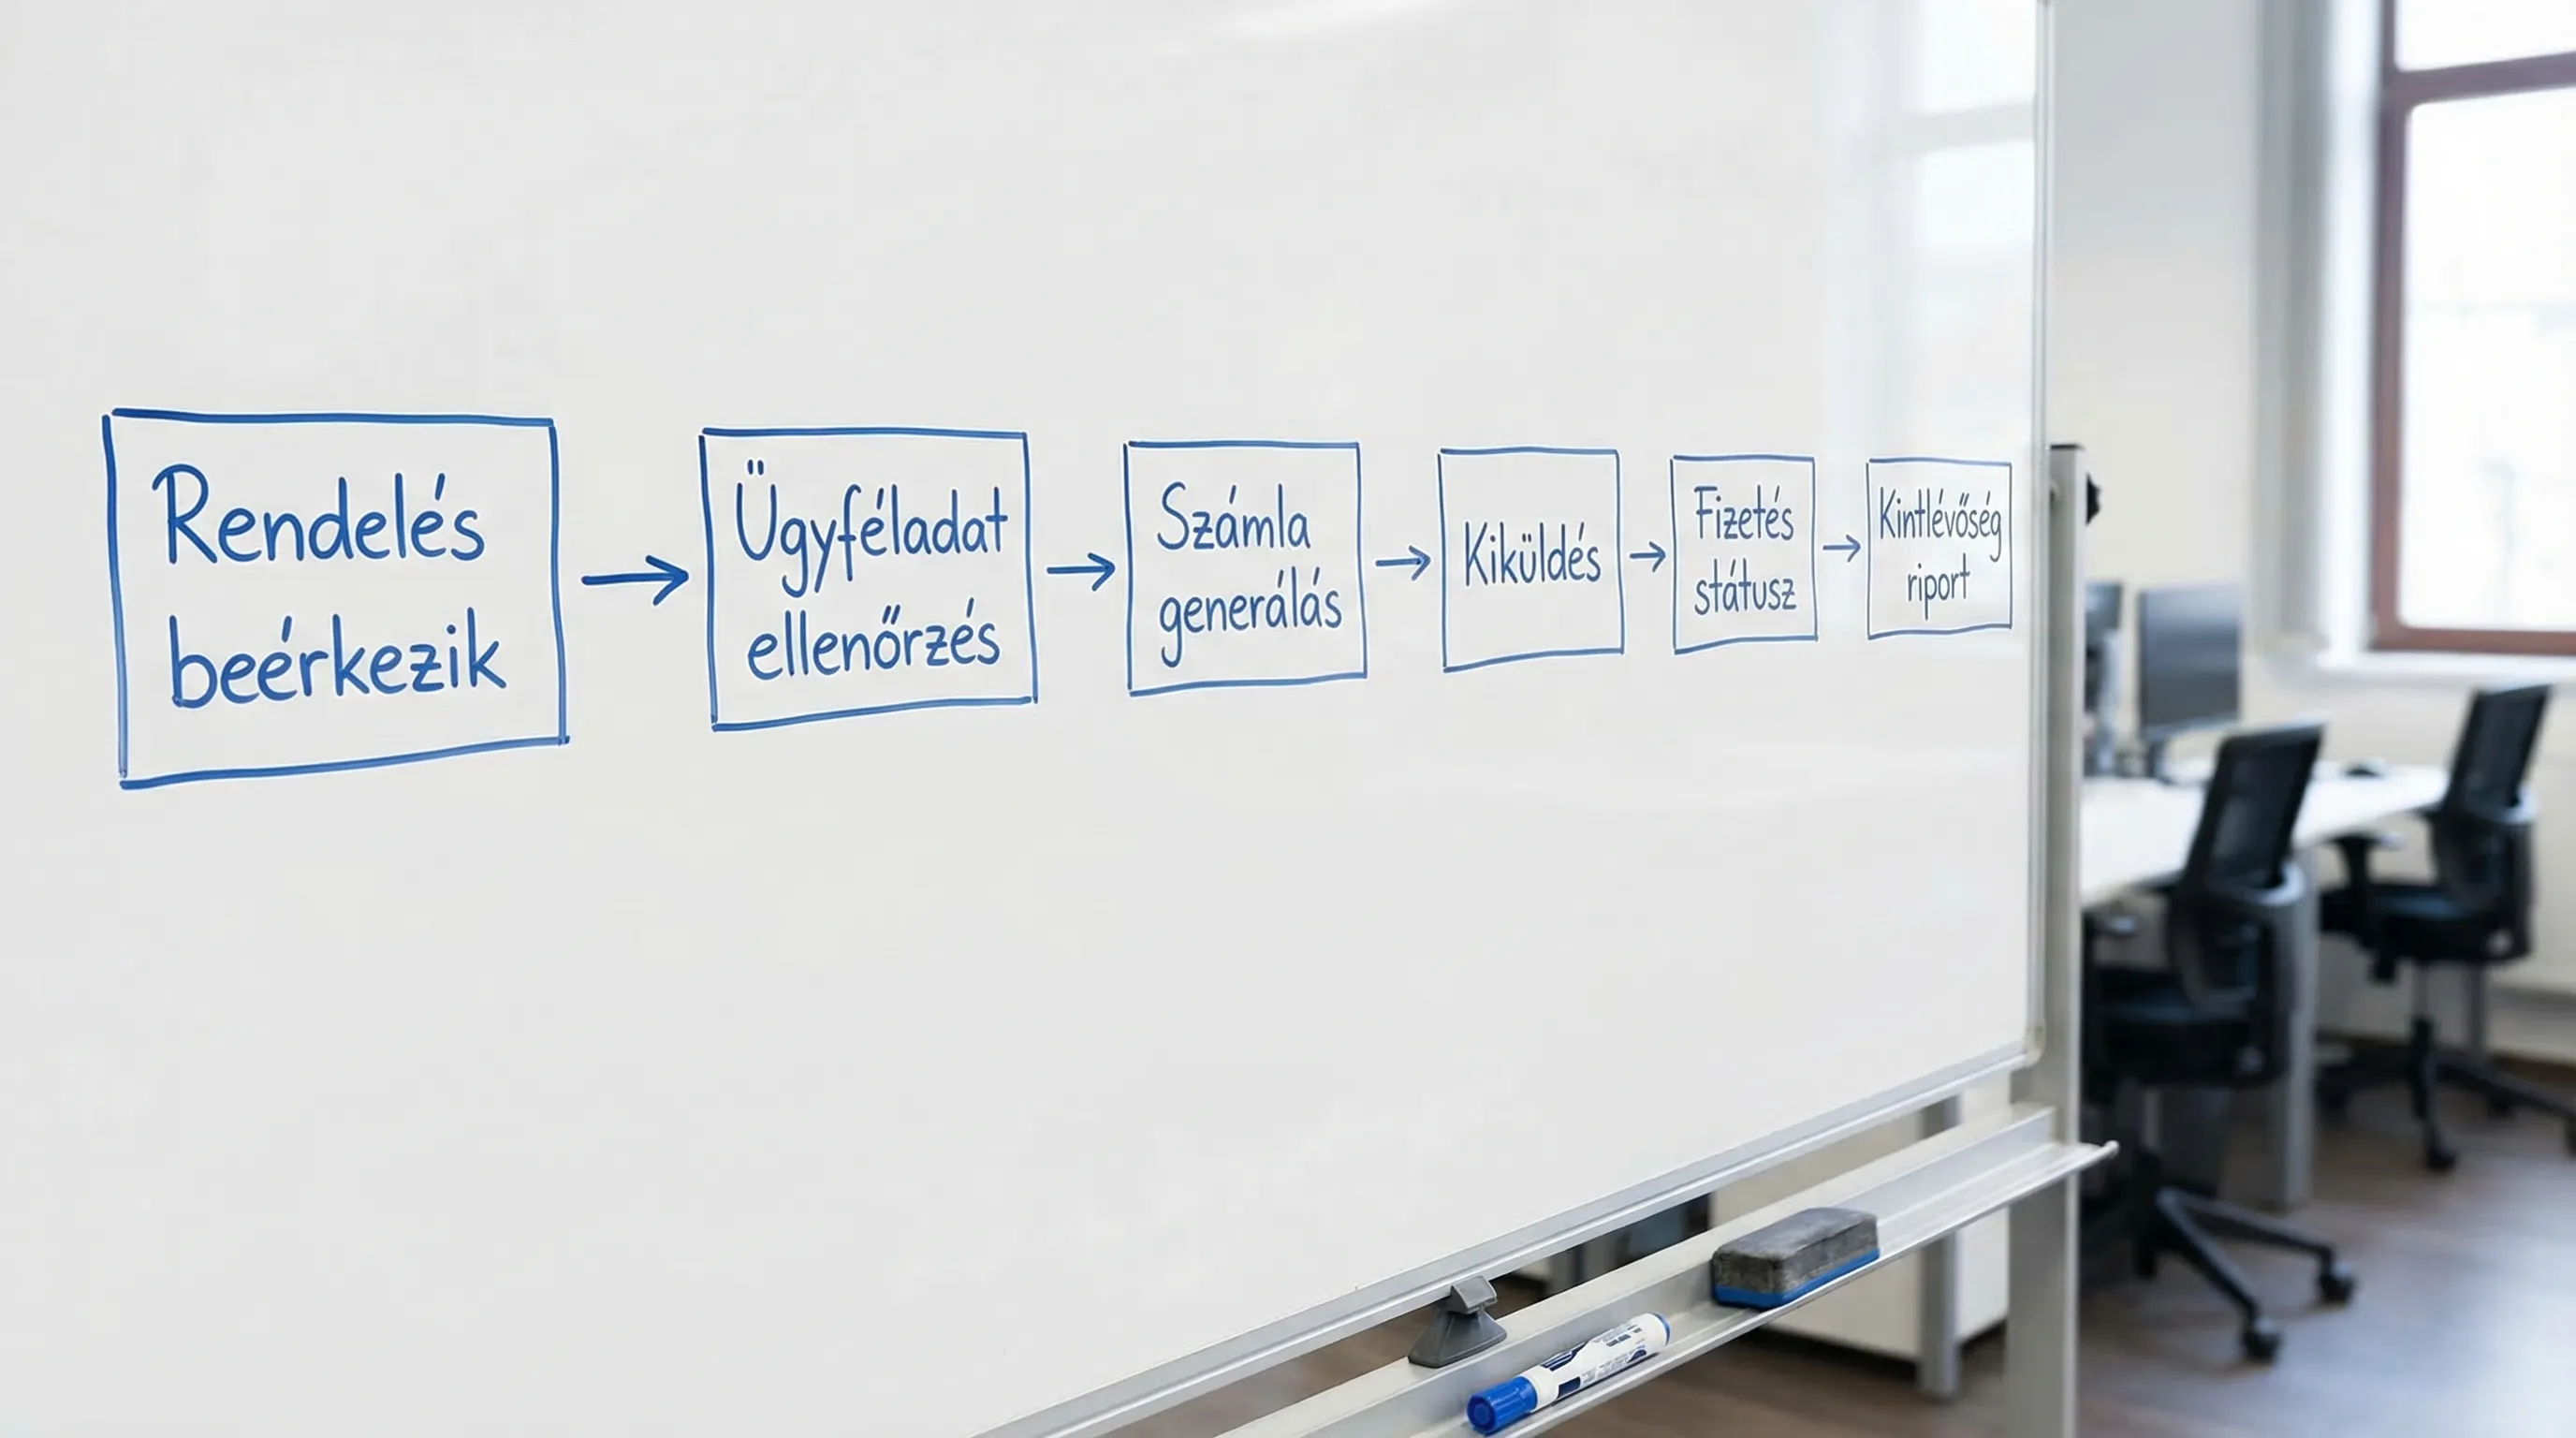 Rendelés
beérkezik
Ügyféladat
ellenőrzés
Számla
generálás
Kiküldés
Fizetés
státusz
Kintlévőség
riport